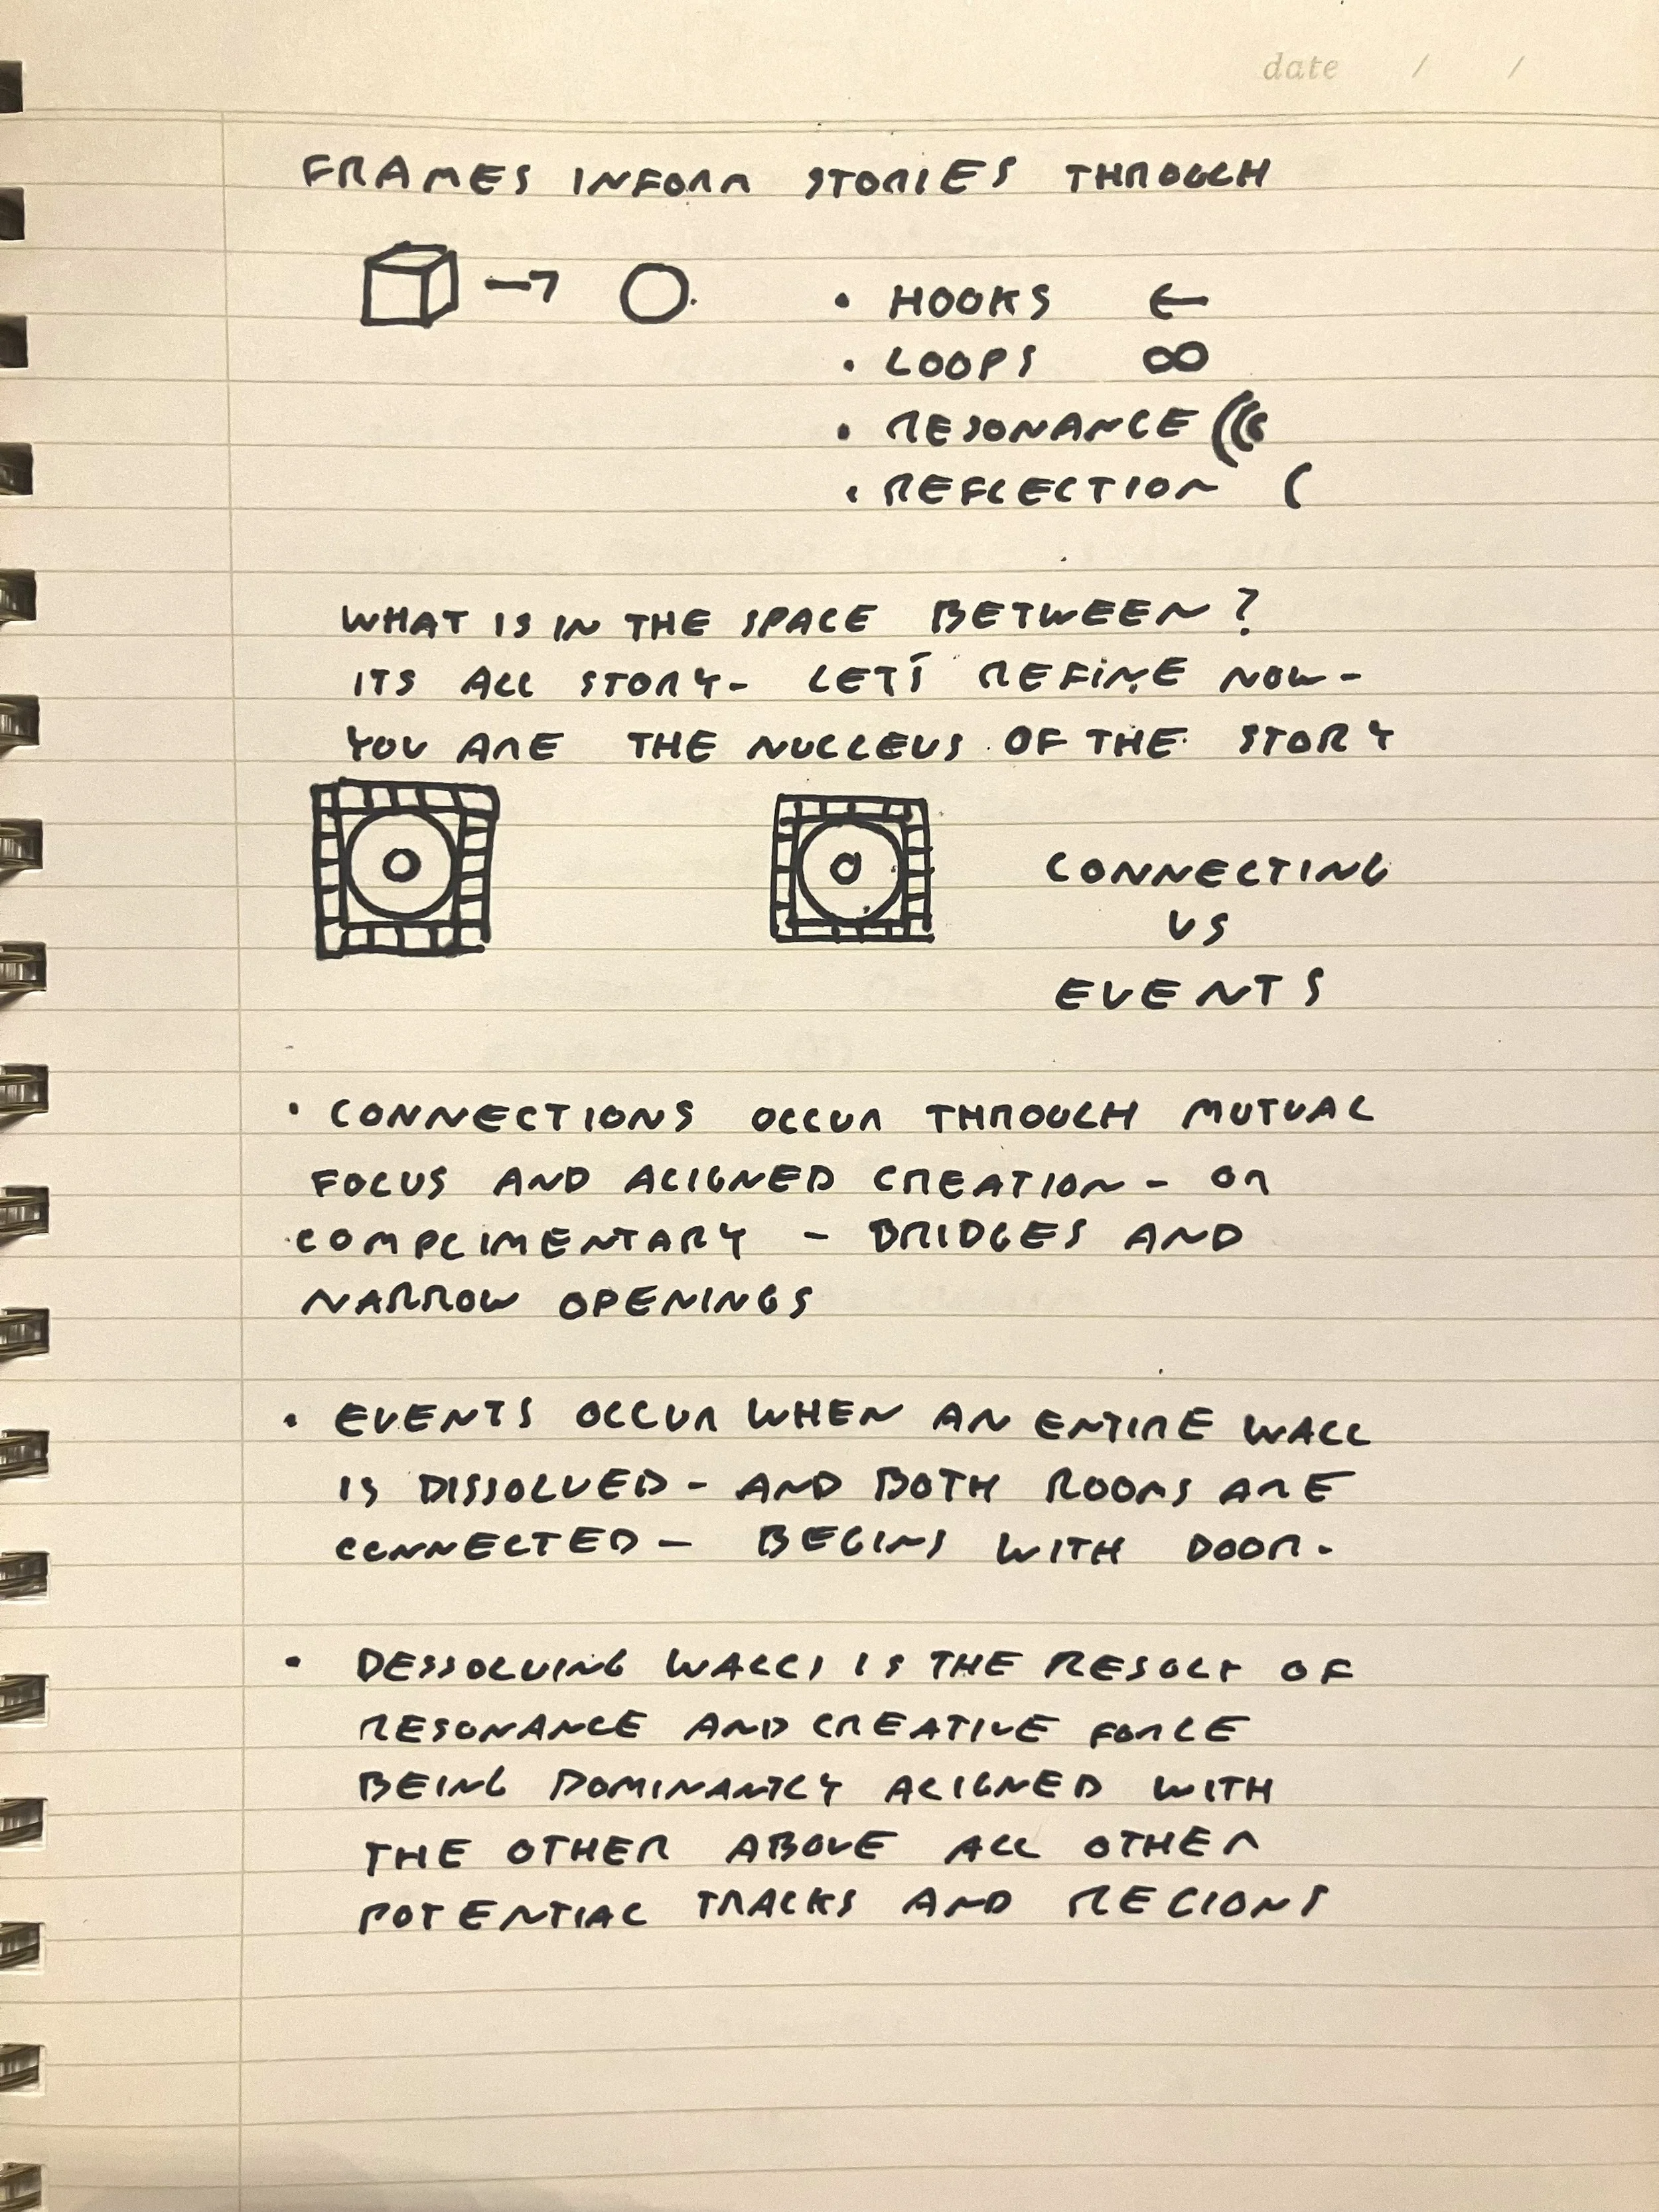 date / /
FRAMES INFORM STORIES THROUGH
• HOOKS ←
• LOOPS ∞
• RESONANCE (((
• REFLECTION (
WHAT IS IN THE SPACE BETWEEN?
ITS ALL STORY- LET'S REFINE NOW-
YOU ARE THE NUCLEUS OF THE STORY
CONNECTING
VS
EVENTS
• CONNECTIONS OCCUR THROUGH MUTUAL
FOCUS AND ALIGNED CREATION - OR
COMPLIMENTARY - BRIDGES AND
NARROW OPENINGS
• EVENTS OCCUR WHEN AN ENTIRE WALL
IS DISSOLVED - AND BOTH ROOMS ARE
CONNECTED - BEGINS WITH DOOR.
• DESSOLVING WALLS IS THE RESULT OF
RESONANCE AND CREATIVE FORCE
BEING DOMINANTLY ALIGNED WITH
THE OTHER ABOVE ALL OTHER
POTENTIAL TRACKS AND REGIONS